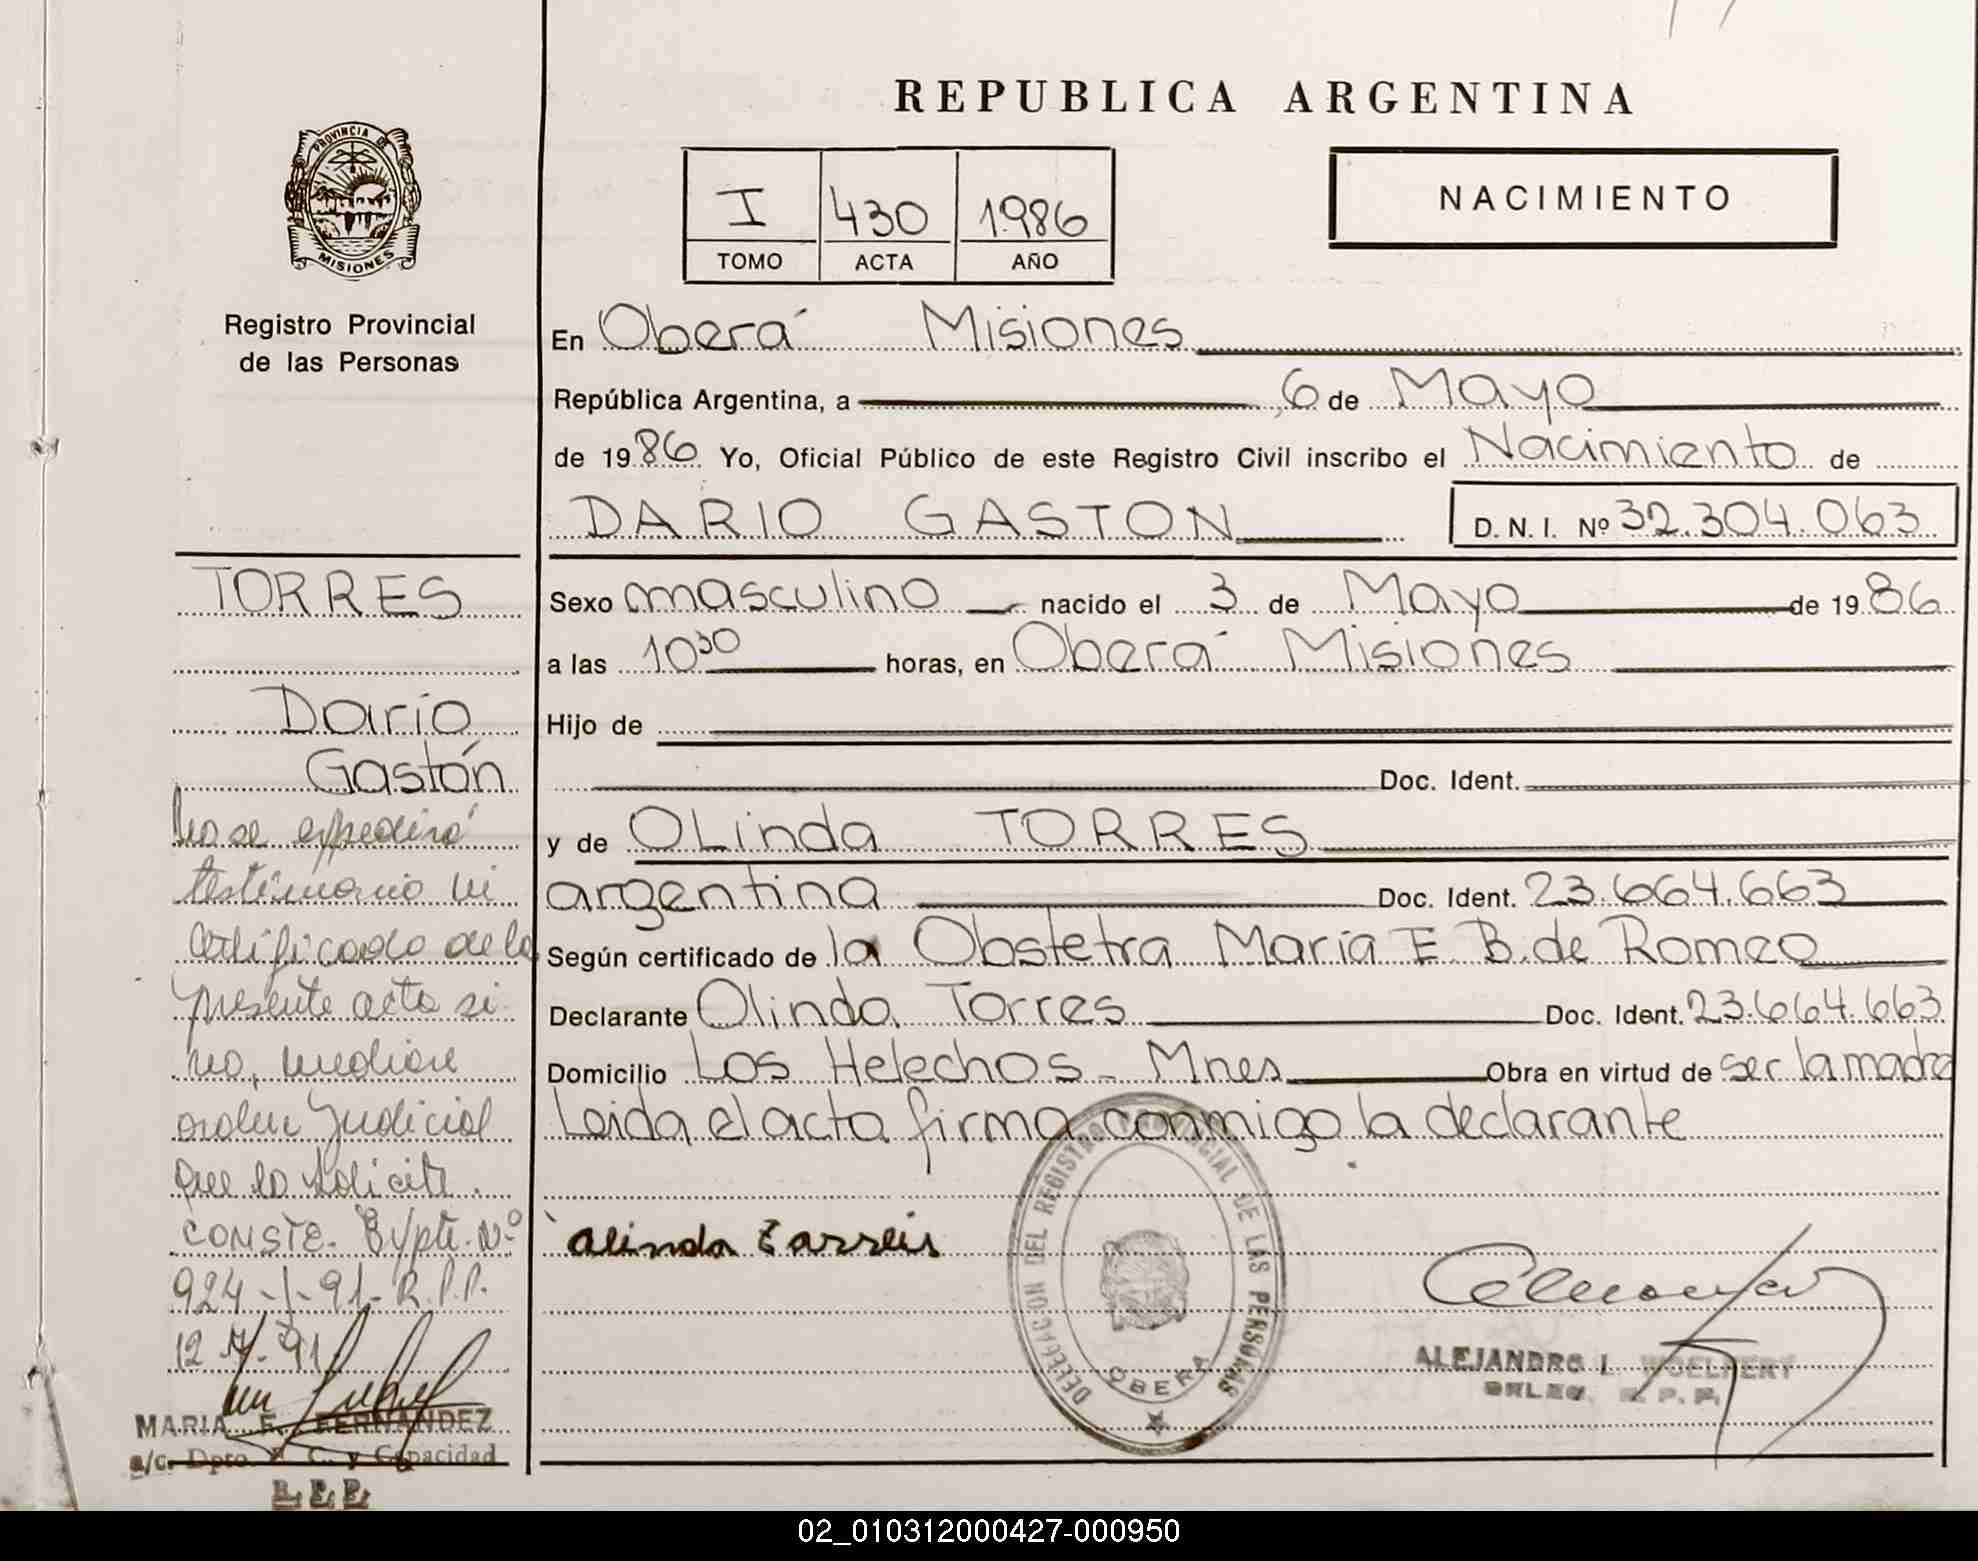 REPUBLICA ARGENTINA
PROVINCIA DE
MISIONES
I 430 1986
TOMO ACTA AÑO
NACIMIENTO
Registro Provincial
de las Personas
En Oberá Misiones
República Argentina, a 6 de Mayo
de 1986 Yo, Oficial Público de este Registro Civil inscribo el Nacimiento de
DARIO GASTON D.N.I. Nº 32.304.063
Sexo masculino nacido el 3 de Mayo de 1986
a las 10 30 horas, en Oberá Misiones
Hijo de
Doc. Ident.
y de OLinda TORRES
argentina Doc. Ident. 23.664.663
Según certificado de la Obstetra María E. B. de Romeo
Declarante Olinda Torres Doc. Ident. 23.664.663
Domicilio Los Helechos - Mnes Obra en virtud de ser la madre
Leida el acta firma conmigo la declarante
TORRES
Dario
Gastón
No se expedirá
testimonio ni
certificado de la
presente acta si
no, mediare
orden Judicial
que lo solicite.
CONSTE. Expte. Nº
924-1-91-R.P.P.
12 91
MARIA E. FERNANDEZ
a/c. Dpto. C. y Capacidad
R.P.P.
DELEGACION DEL REGISTRO PROVINCIAL DE LAS PERSONAS
OBERA
ALEJANDRO L. WOELFERT
R.P.P.
02_010312000427-000950